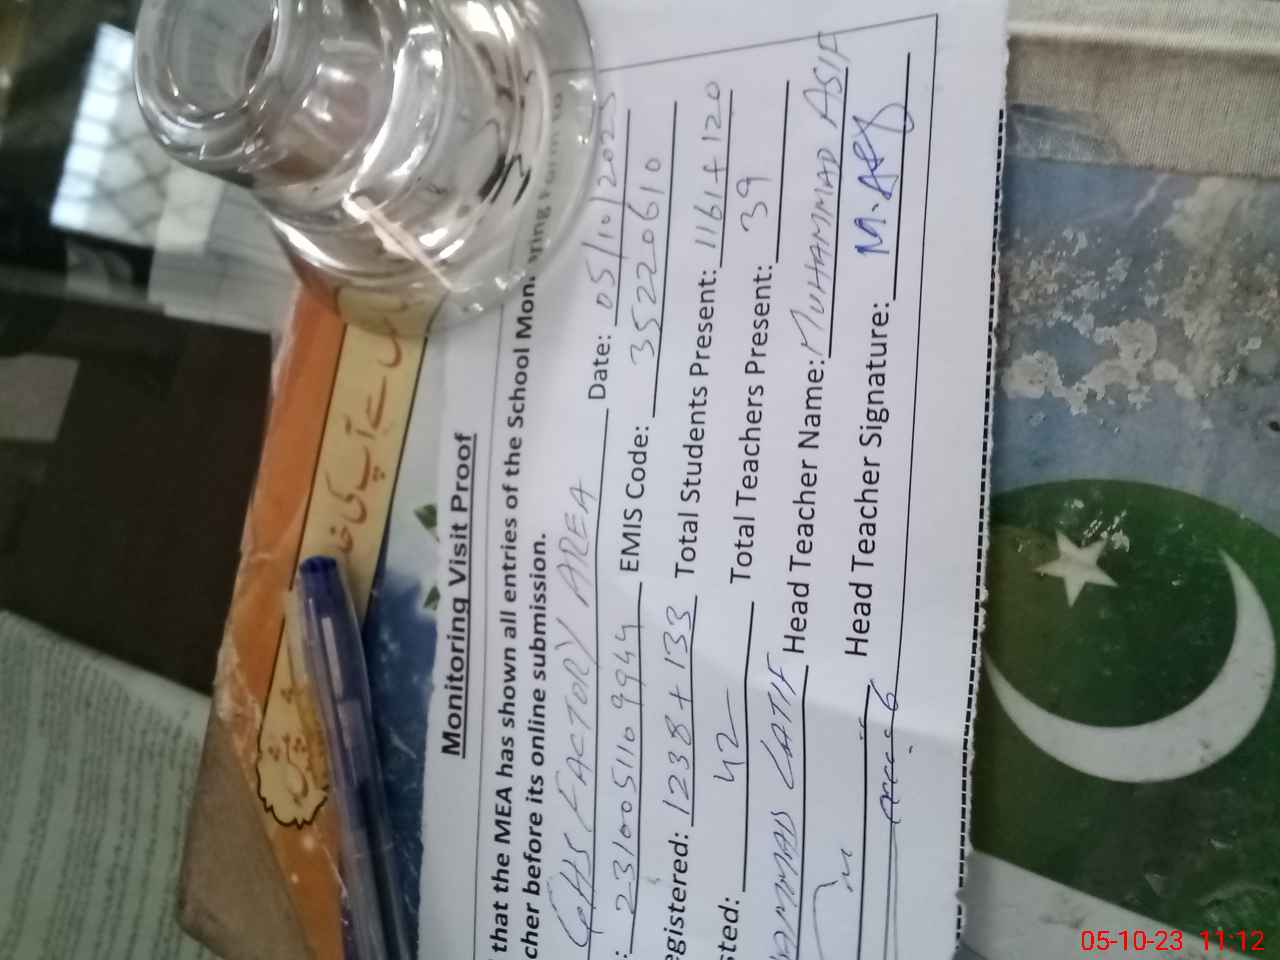 Monitoring Visit Proof
that the MEA has shown all entries of the School Mon
cher before its online submission.
GHS FACTORY AREA Date: 05/10/2023
: 231005110 9944 EMIS Code: 35220610
egistered: 1238 + 133 Total Students Present: 1161 + 120
sted: 42 Total Teachers Present: 39
AMMAD LATIF Head Teacher Name: MUHAMMAD ASIF
Head Teacher Signature: M. Asif
05-10-23 11:12